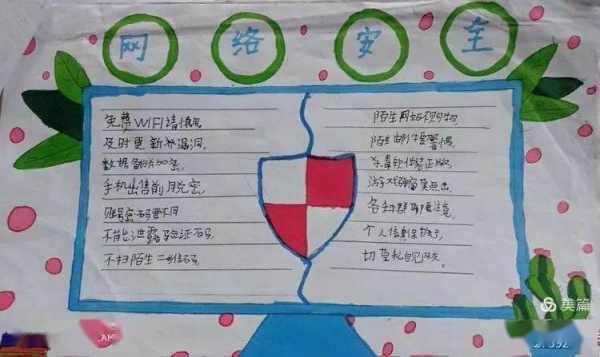 网络安全
免费WIFI请慎用
及时更新补漏洞
数据备份加密
手机出售前
账号密码要不同
不能泄露验证码
不扫陌生二维码
陌生网站
陌生邮件提警惕
杀毒软件
游戏
各种群聊要注意
个人信息保护好
切莫私自见网友
美篇